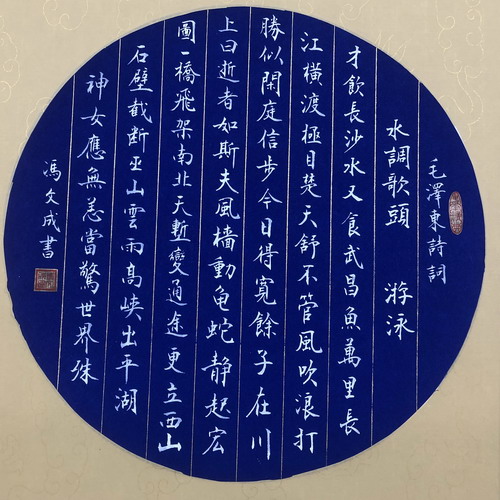 毛澤東詩詞
水調歌頭 游泳
才飲長沙水又食武昌魚萬里長
江橫渡極目楚天舒不管風吹浪打
勝似閑庭信步今日得寬餘子在川
上曰逝者如斯夫風檣動龜蛇静起宏
圖一橋飛架南北天塹變通途更立西山
石壁截斷巫山雲雨高峽出平湖
神女應無恙當驚世界殊
馮文成書